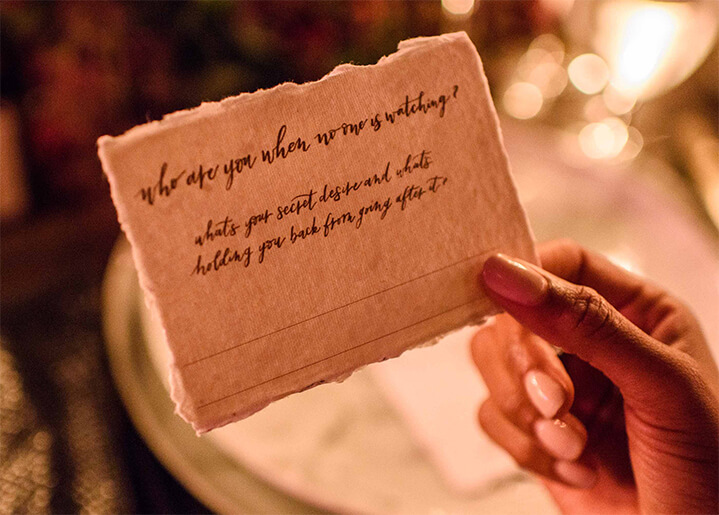 who are you when no one is watching?
whats your secret desire and whats
holding you back from going after it?